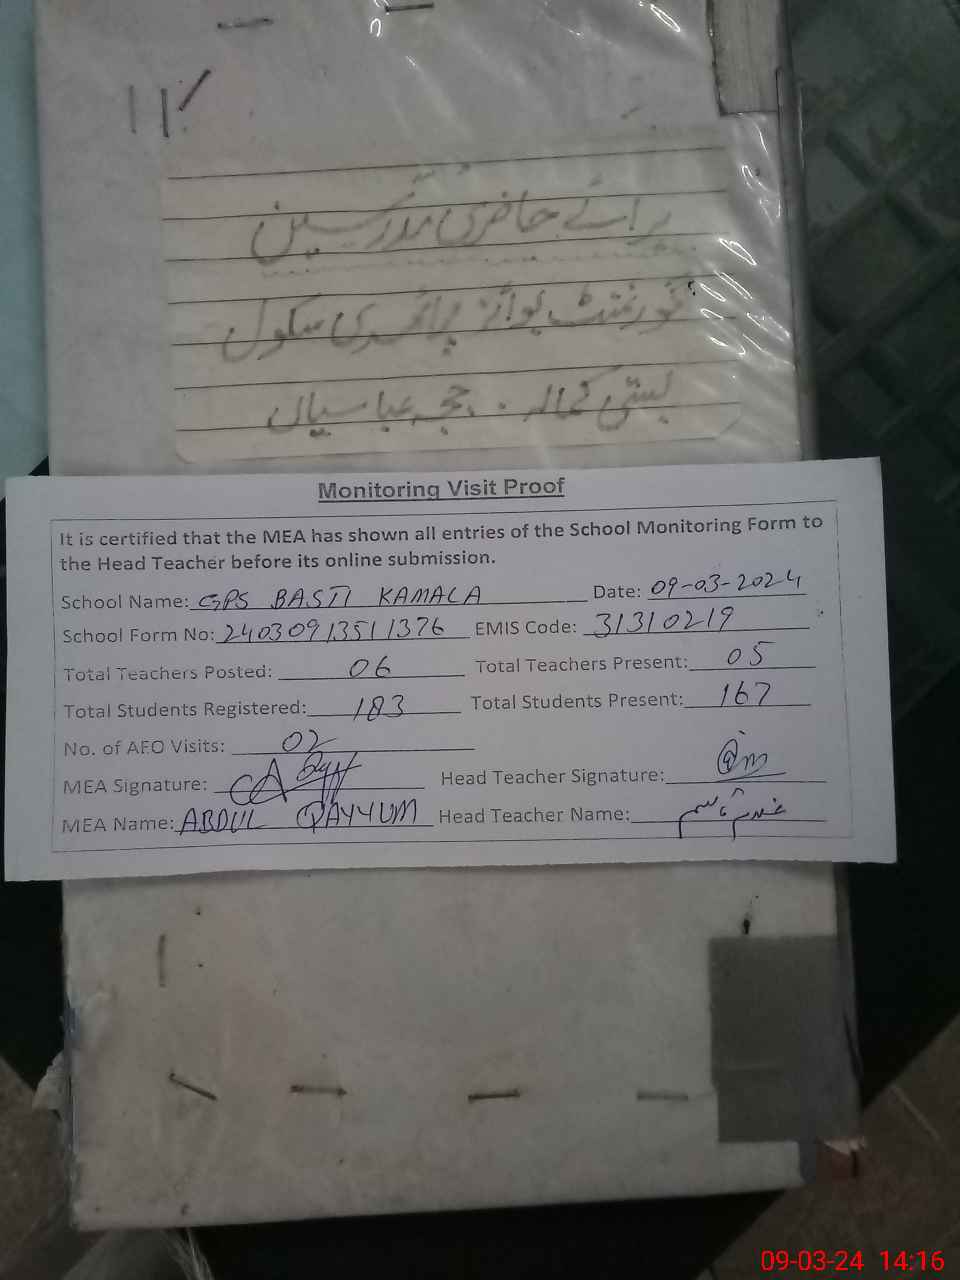 برائے حاضری مدرسین
گورنمنٹ بوائز پرائمری سکول
بستی کمالہ . ججہ عباسیاں
Monitoring Visit Proof
It is certified that the MEA has shown all entries of the School Monitoring Form to
the Head Teacher before its online submission.
School Name: GPS BASTI KAMALA Date: 09-03-2024
School Form No: 24030913511376 EMIS Code: 31310219
Total Teachers Posted: 06 Total Teachers Present: 05
Total Students Registered: 183 Total Students Present: 167
No. of AEO Visits: 02
MEA Signature: Head Teacher Signature:
MEA Name: ABDUL QAYYUM Head Teacher Name:
09-03-24 14:16